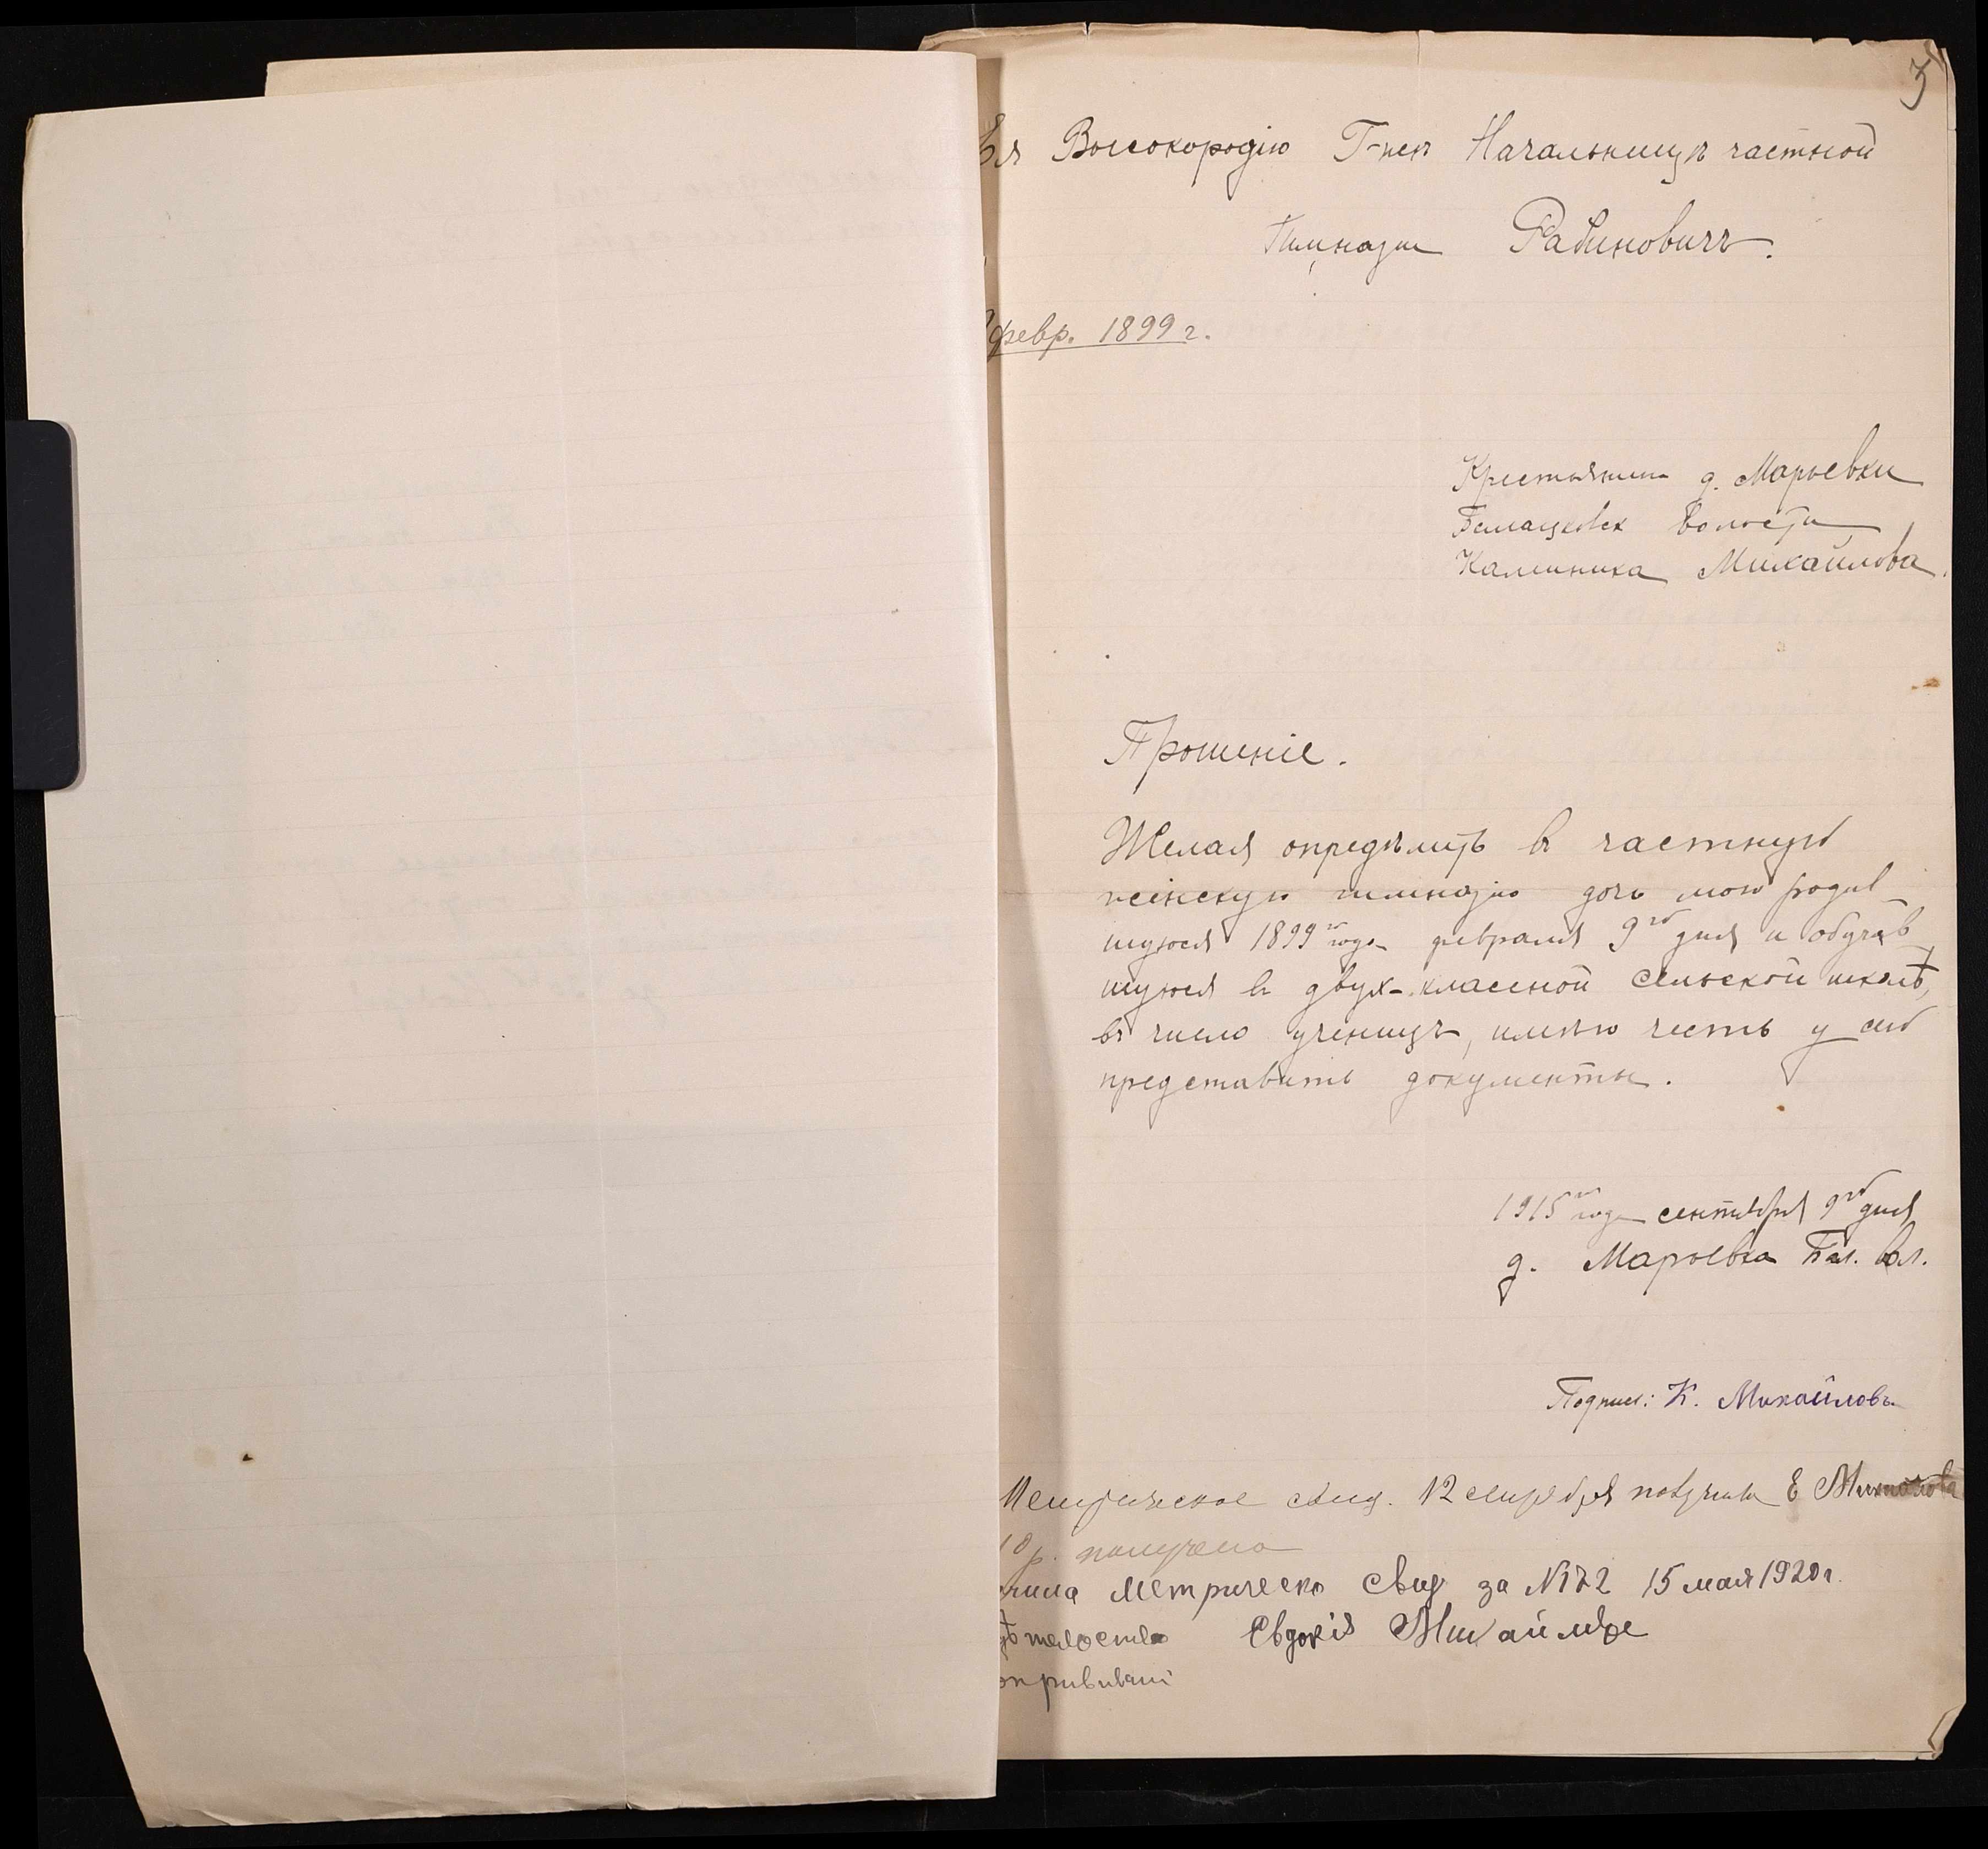 3
Ея Высокородію Г-жѣ Начальницѣ частной
Гимназіи Рабиновичъ.
февр. 1899 г.
Крестьянина д. Марьевки
волости
Каленика Михайлова.
Прошеніе.
Желая опредѣлить въ частную
женскую гимназію дочь мою родив-
шуюся 1899 го года февраля 9 го дня и обучав
шуюся въ двух-классной сельской школѣ,
въ число ученицъ, имѣю честь у сего
представить документы.
1915 го года сентября 9 го дня
д. Марьевка Бал. вол.
Подпись: К. Михайловъ
Метрическое свид. 12 сентября получила Е Михайлова
10 р. получено
чила Метрическо Свид за №172 15 мая 1920 г.
Евдокія Михайлова